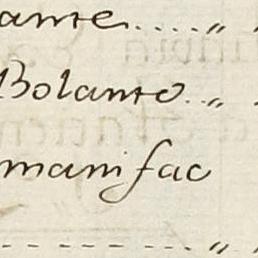 ante.....„ „
Bolante..„
manifac
-------„ „